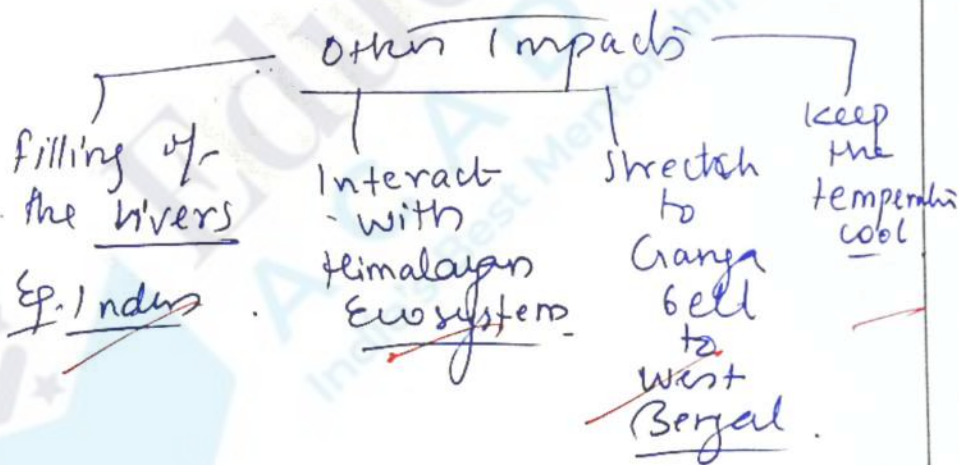 Other Impacts
filling of
the rivers
Eg. Indus.
Interact
with
Himalayan
Ecosystem
Stretch
to
Ganga
belt
to
West
Bengal.
Keep
the
temperature
cool